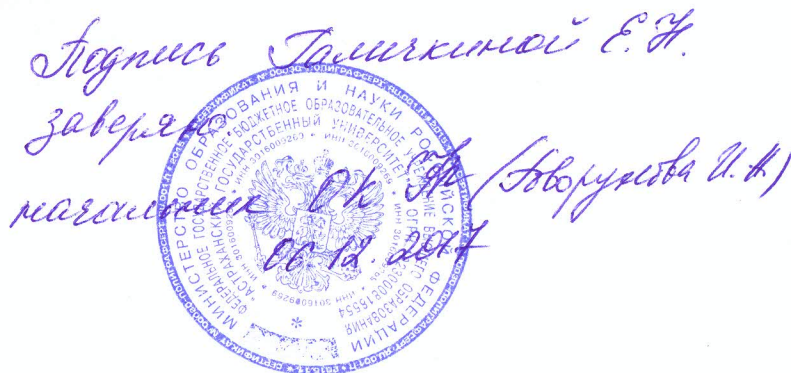 Подпись Галичкиной Е.Н.
заверяю
начальник ОК (Говорунова И.А)
06.12.2017
МИНИСТЕРСТВО ОБРАЗОВАНИЯ И НАУКИ РОССИЙСКОЙ ФЕДЕРАЦИИ
ФЕДЕРАЛЬНОЕ ГОСУДАРСТВЕННОЕ БЮДЖЕТНОЕ ОБРАЗОВАТЕЛЬНОЕ УЧРЕЖДЕНИЕ ВЫСШЕГО ОБРАЗОВАНИЯ
"АСТРАХАНСКИЙ ГОСУДАРСТВЕННЫЙ УНИВЕРСИТЕТ"
ИНН 3016009269